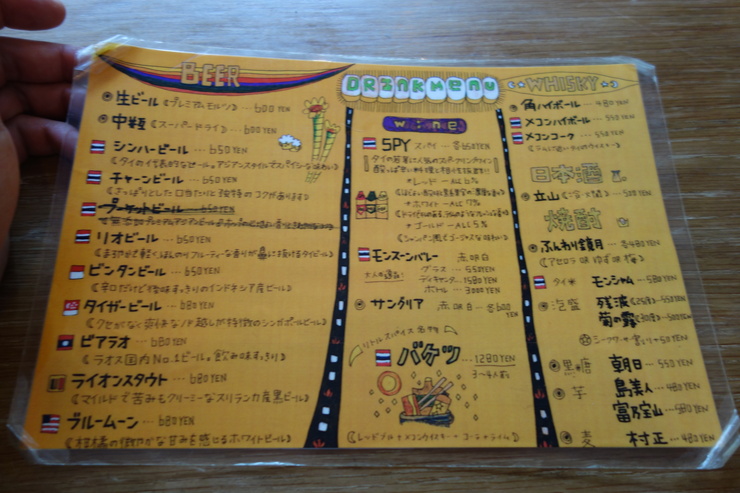 BEER
生ビール《プレミアムモルツ》… 600 YEN
中瓶《スーパードライ》… 600 YEN
シンハービール … 650 YEN
《タイの代表的なビール。アジアンスタイルでスパイシーな味わい》
チャーンビール … 650 YEN
《さっぱりとした口当たりに独特のコクがあります》
プーケットビール … 650 YEN
リオビール … 650 YEN
ビンタンビール … 650 YEN
《辛口だけど後味すっきりのインドネシア産ビール》
タイガービール … 680 YEN
《クセがなく爽快なノド越しが特徴のシンガポールビール》
ビアラオ … 680 YEN
《ラオス国内No.1ビール。飲み味すっきり》
ライオンスタウト … 680 YEN
《マイルドで苦みもクリーミーなスリランカ産黒ビール》
ブルームーン … 680 YEN
《柑橘の爽やかな甘みを感じるホワイトビール》
DRINK MENU
SPY スパイ … 各650YEN
*レッド - ALC 6%
*ホワイト - ALC 7%
*ゴールド - ALC 5%
モンスーンバレー 赤.白
グラス … 550YEN
デキャンタ … 1580YEN
ボトル … 3000YEN
サングリア 赤 OR 白 … 各600 YEN
リトルスパイス名物
バケツ … 1280YEN
3〜4人前
《レッドブル+メコンウイスキー+コーラ+ライム》
WHISKY
角ハイボール … 480YEN
メコンハイボール … 550 YEN
メコンコーク … 550 YEN
日本酒
立山 … 500 YEN
焼酎
ふんわり鏡月 … 各480YEN
《アセロラ味 ゆず味 梅》
タイ米 モンシャム … 580 YEN
泡盛 残波《25度》… 550YEN
菊の露《30度》… 500YEN
黒糖 朝日 … 550 YEN
芋 島美人 … 480 YEN
富乃宝山 … 580 YEN
麦 村正 … 480 YEN